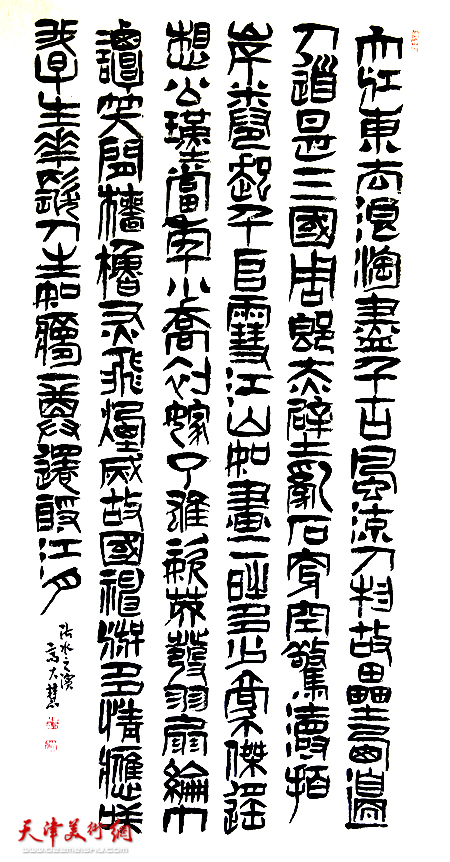 大江東去浪淘盡千古風流人物故壘西邊
人道是三國周郎赤壁亂石穿空驚濤拍
岸卷起千堆雪江山如畫一時多少豪傑遙
想公瑾當年小喬初嫁了雄姿英發羽扇綸巾
談笑間檣櫓灰飛煙滅故國神游多情應笑
我早生華髮人生如夢一尊還酹江月
沽水之濱
天津美術網